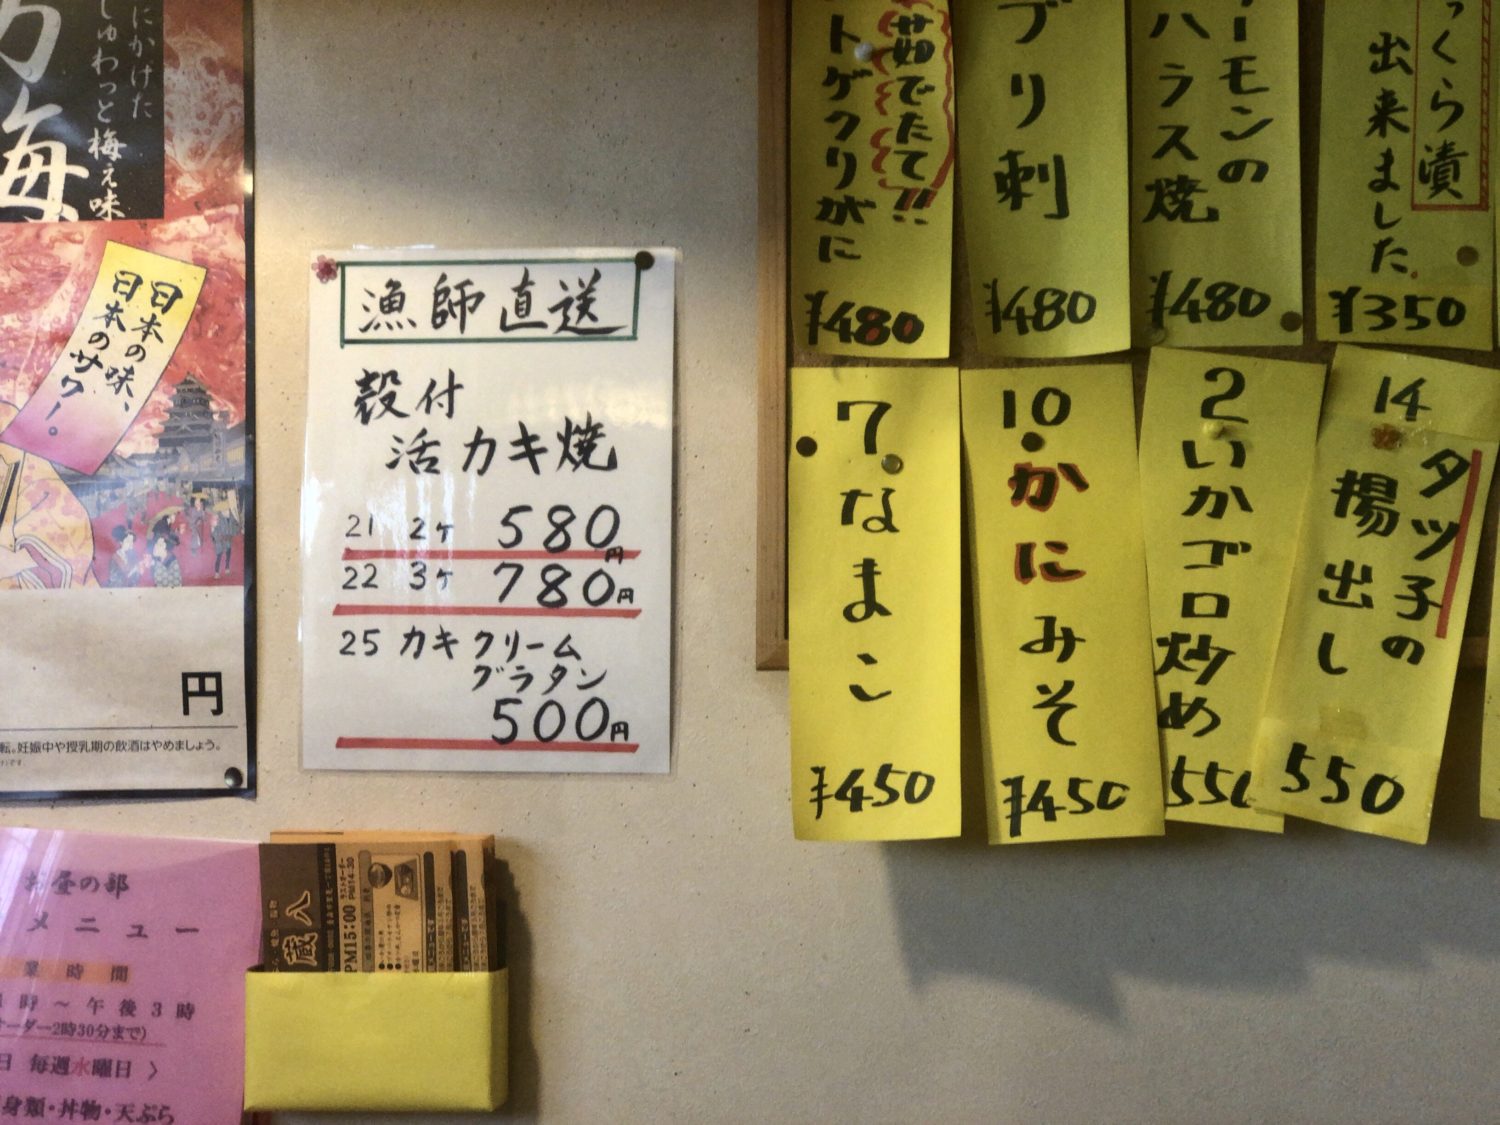 にかけた
しゅわっと梅ぇ味
梅
日本の味、
日本のサワー!
円
転。妊娠中や授乳期の飲酒はやめましょう。
漁師直送
殻付
活カキ焼
21 2ヶ 580円
22 3ヶ 780円
25 カキクリーム
グラタン
500円
茹でたて!!
トゲクリガニ
¥480
ブリ刺
¥480
ーモンの
ハラス焼
¥480
っくら漬
出来ました
¥350
7
なまこ
¥450
10
かにみそ
¥450
2
いかゴロ炒め
550
14
タツ子の
揚出し
550
お昼の部
メニュー
業時間
時～午後3時
オーダー2時30分まで)
日 毎週水曜日 〉
身類・丼物・天ぷら
蔵八
PM15:00
ラストオーダー
PM14:30